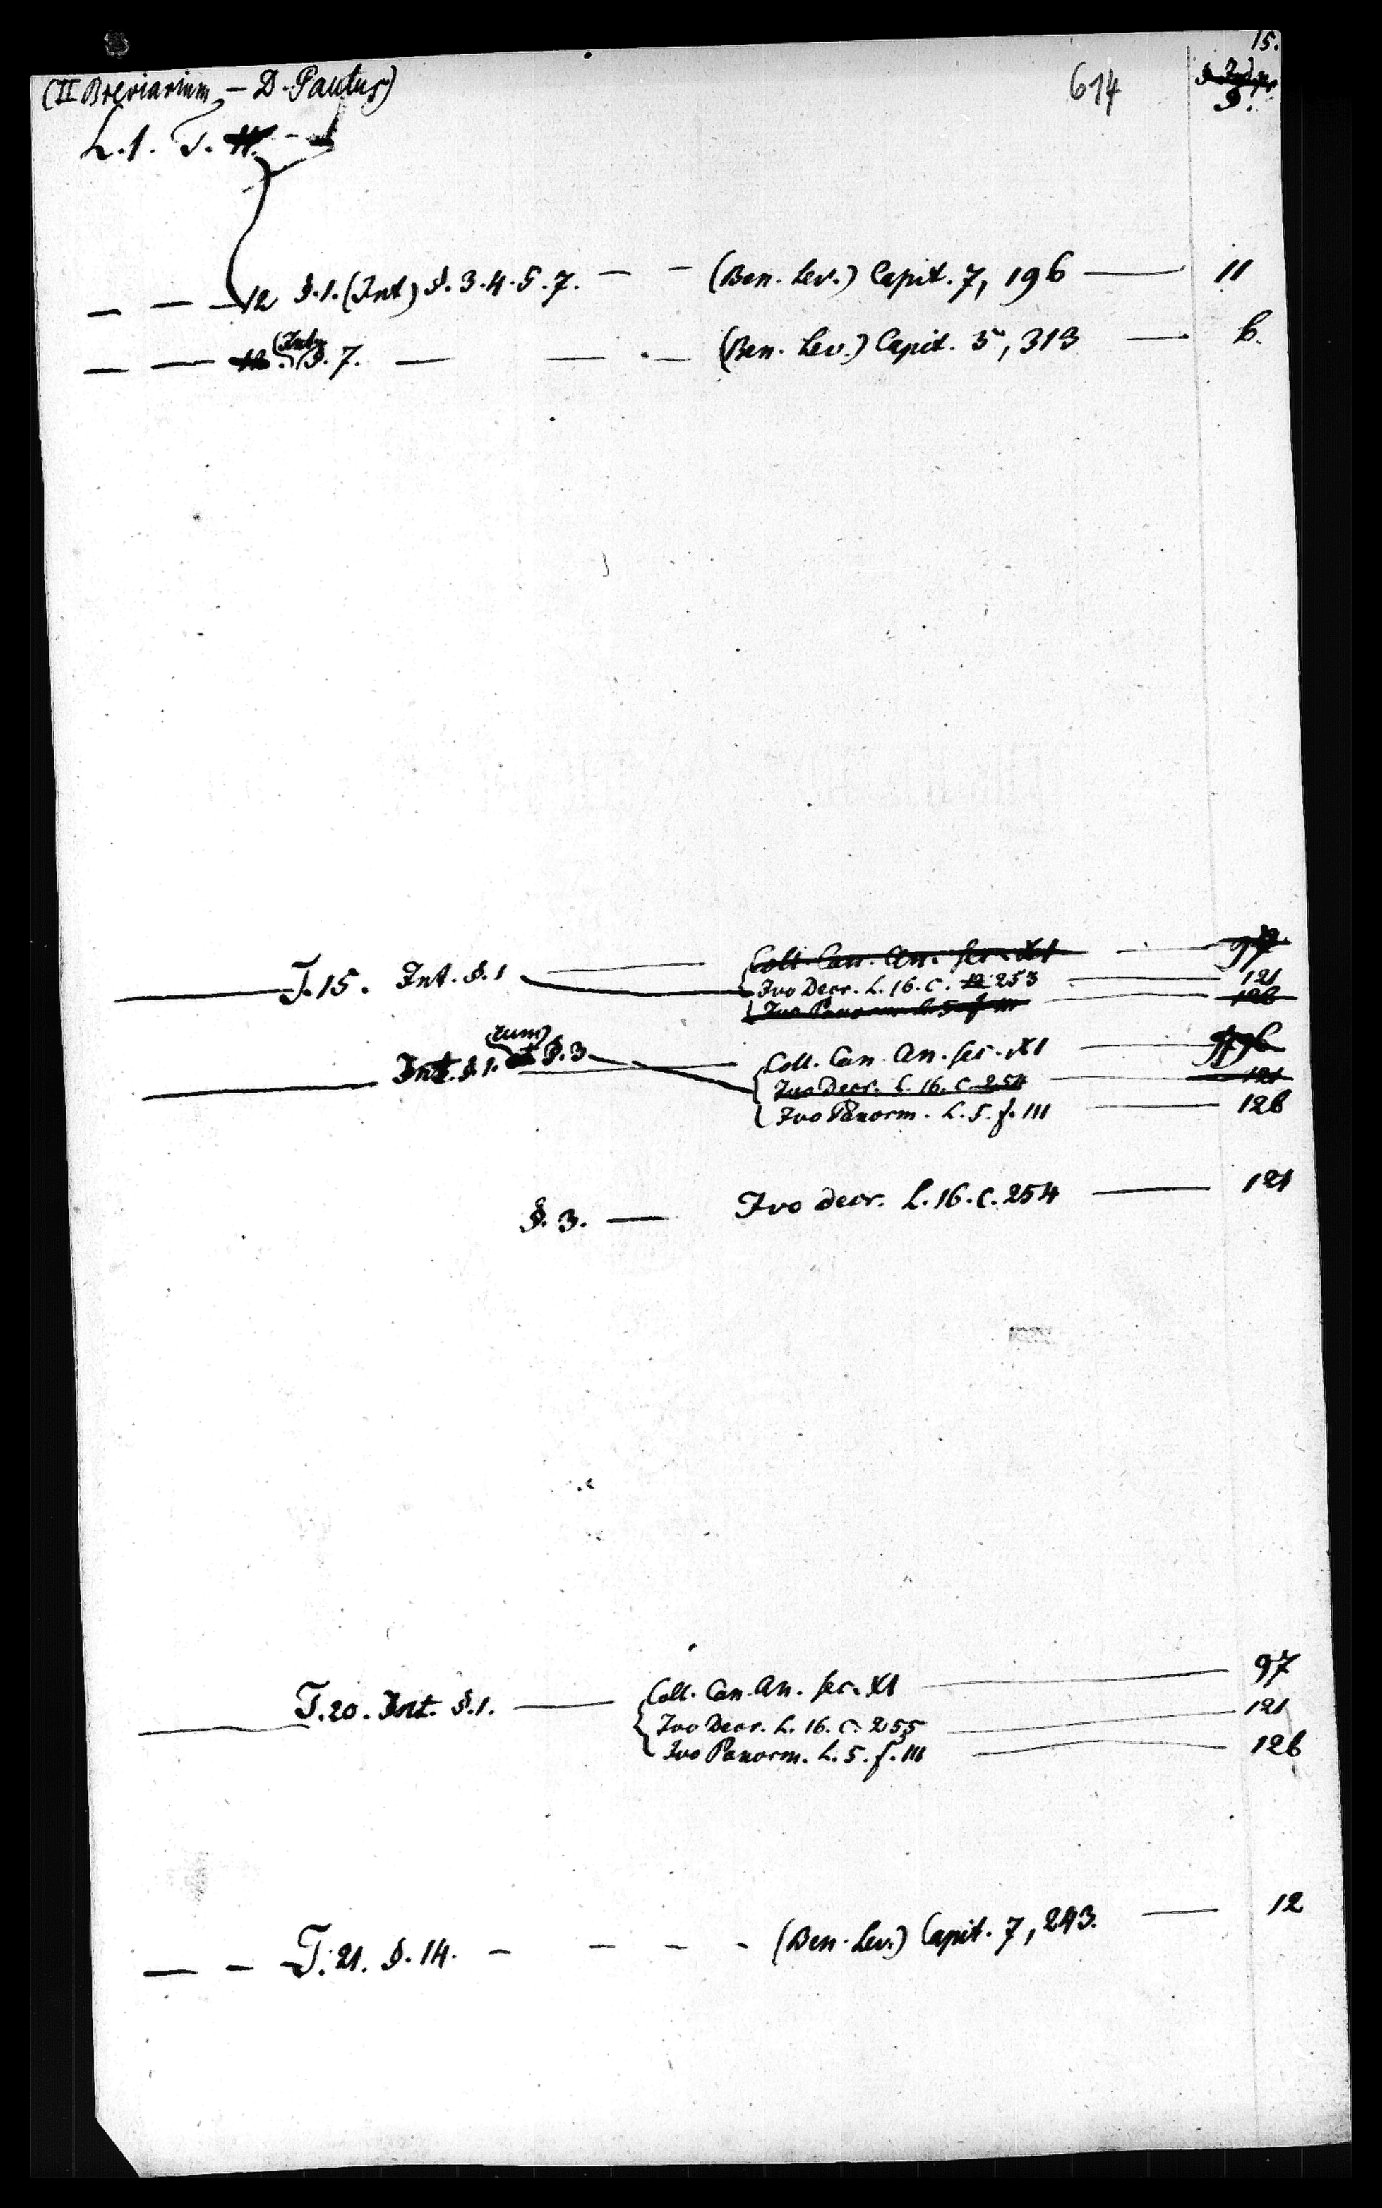 15.
(II Breviarium, – D. Paulus) 614
9.
L. 1. T. 11.
— — — 12 §. 1. (Int) §. 3. 4. 5. 7. — — (Ben. Lev.) Capit. 7, 196 — 11
— — 12. (Int) §. 7. — — — (Ben. Lev.) Capit. 5, 313 — 6.
Coll. Can. An. sec. XI — 97
— T. 15. Int. §. 1 — Ivo Decr. L. 16. c. 253 — 121
Ivo Panorm. L. 5. f. 111 — 126
— Int. §. 1. (cum) §. 3 — Coll. Can. An. sec. XI — 96
Ivo Decr. L. 16. c. 254 — 121
Ivo Panorm. L. 5. f. 111 — 126
§. 3. — Ivo decr. L. 16. c. 254 — 121
— T. 20. Int. §. 1. — Coll. Can. An. sec. XI — 97
Ivo Decr. L. 16. c. 255 — 121
Ivo Panorm. L. 5. f. 111 — 126
— — T. 21. §. 14. — — — — (Ben. Lev.) Capit. 7, 243. — 12